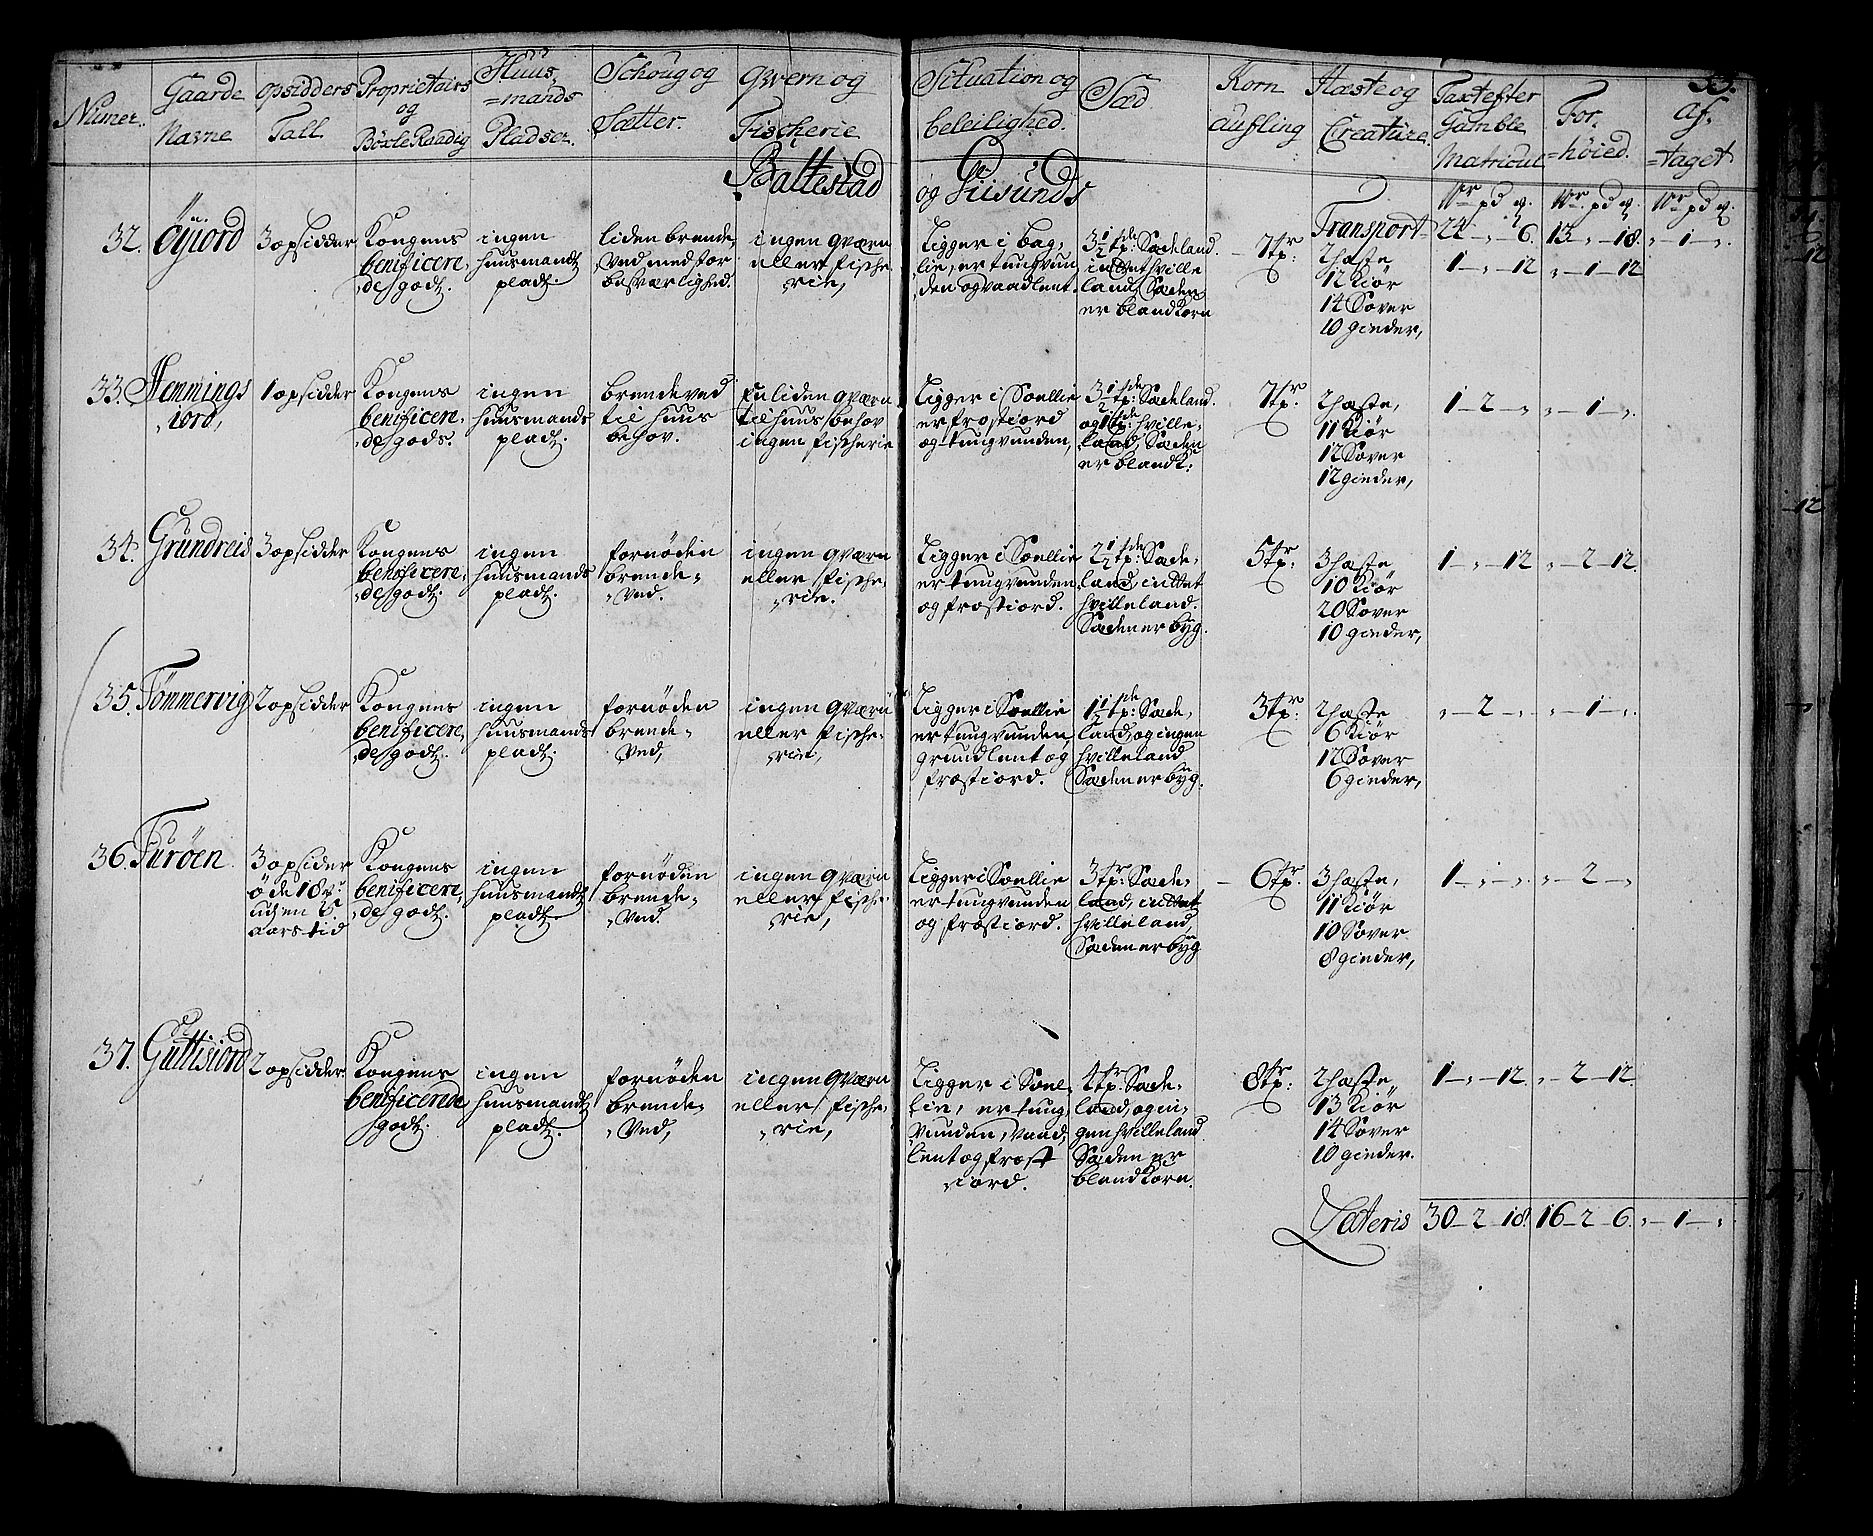 33.
Numer.
Gaarde
Navne
opsidders
Tall
Proprietairs
og
Böxle Raadig
Huus,
=mands
Pladser.
Schoug og
Sætter.
Qvern og
Fischerie
Situation og
beleilighed.
Sæd
Korn
aufling
Hæste og
Creature.
Taxt efter
Gamble
Matricul
For,
=höied.
Af,
=taget
Baltestad og Giisunds
Wr pd q. Wr pd q. Wr pd q.
Transport 24 „ 6. 13 „ 18. „ 1 „.
32. Öÿiord
3 opsidder
Kongens
benificere,
„de godtz.
ingen
huusmandtz
pladtz.
liden brende,
„ved med for
besværlighed.
ingen qværn
eller fische
„rie,
Ligger i bag,
lie, er tungvun
„den og vaadlent.
3½ tde Sædeland.
indtet hville
land, Sæden
er blandkorn
7 tr:
2 hæste
12 Kiör
14 Sover
10 gieder,
1 „ 12 „ 1 12
33. Hemmings
„iord,
1 opsidder
Kongens
benificere,
„de gods.
ingen
huusmands
pladtz.
brendeved
til huus
behov.
En liden qværn
til huus behov
ingen fischerie
Ligger i Soellie
er frostiord
og tungvunden,
3½ tde Sædeland.
og hville,
land, Sæden
er blandk:
7 tr:
2 hæste,
11 Kiör
12 Sover
12 gieder,
1 2 „ „ 1 „.
34. Grundreid
3 opsidder
Kongens
benificere,
„de godtz.
ingen
huusmands
pladtz.
fornöden
brende,
„ved.
ingen qværn
eller fische,
„rie.
Ligger i Soellie
er tungvunden
og frostiord.
2½ tde Sæde,
land, indtet
hvilleland.
Sæden er byg.
5 tr:
3 hæste
10 Kiör
20 Sover
10 gieder,
1 „ 12 „ 2 12
35. Tömmervig
2 opsidder
Kongens
benificere,
„de godtz.
ingen
huusmands
pladtz.
fornöden
brende,
„ved,
ingen qværn
eller fische,
„rie,
Ligger i Soellie
er tungvunden,
grundlent og
frostiord.
1½ tde Sæde,
land, og ingen
hvilleland
Sæden er byg.
3 tr:
2 hæste
6 Kiör
12 Sover
6 gieder,
„ 2 „ „ 1 „.
36. Furöen
3 opsider
öde 18 mr:
uden
aars tid
Kongens
benificere,
„de godtz.
ingen
huusmandtz
pladtz
fornöden
brende,
„ved
ingen qværn
eller fische,
„rie,
Ligger i Soellie
er tungvunden
og frostiord.
3 tr: Sæde,
land, indtet
hvilleland,
Sæden er byg
6 tr:
3 hæste,
11 Kiör
10 Sover
8 gieder,
1 „ „ „ 2 „
37. Gultisiord
2 opsidder.
Kongens
benificerede
godtz.
ingen
huusmandtz
pladtz.
fornöden
brende,
„ved,
ingen qværn
eller fische,
„rie,
Ligger i Soel,
lie, er tung,
vunden, vaad,
lent og frost
„iord.
4 tr: Sæde,
land, og in,
gen hvilleland
Sæden er
blandkorn.
8 tr:
2 hæste
13 Kiör
14 Sover
10 gieder.
1 „ 12 „ 2 12
Lateris 30 2 18. 16 2 6. „ 1 „.